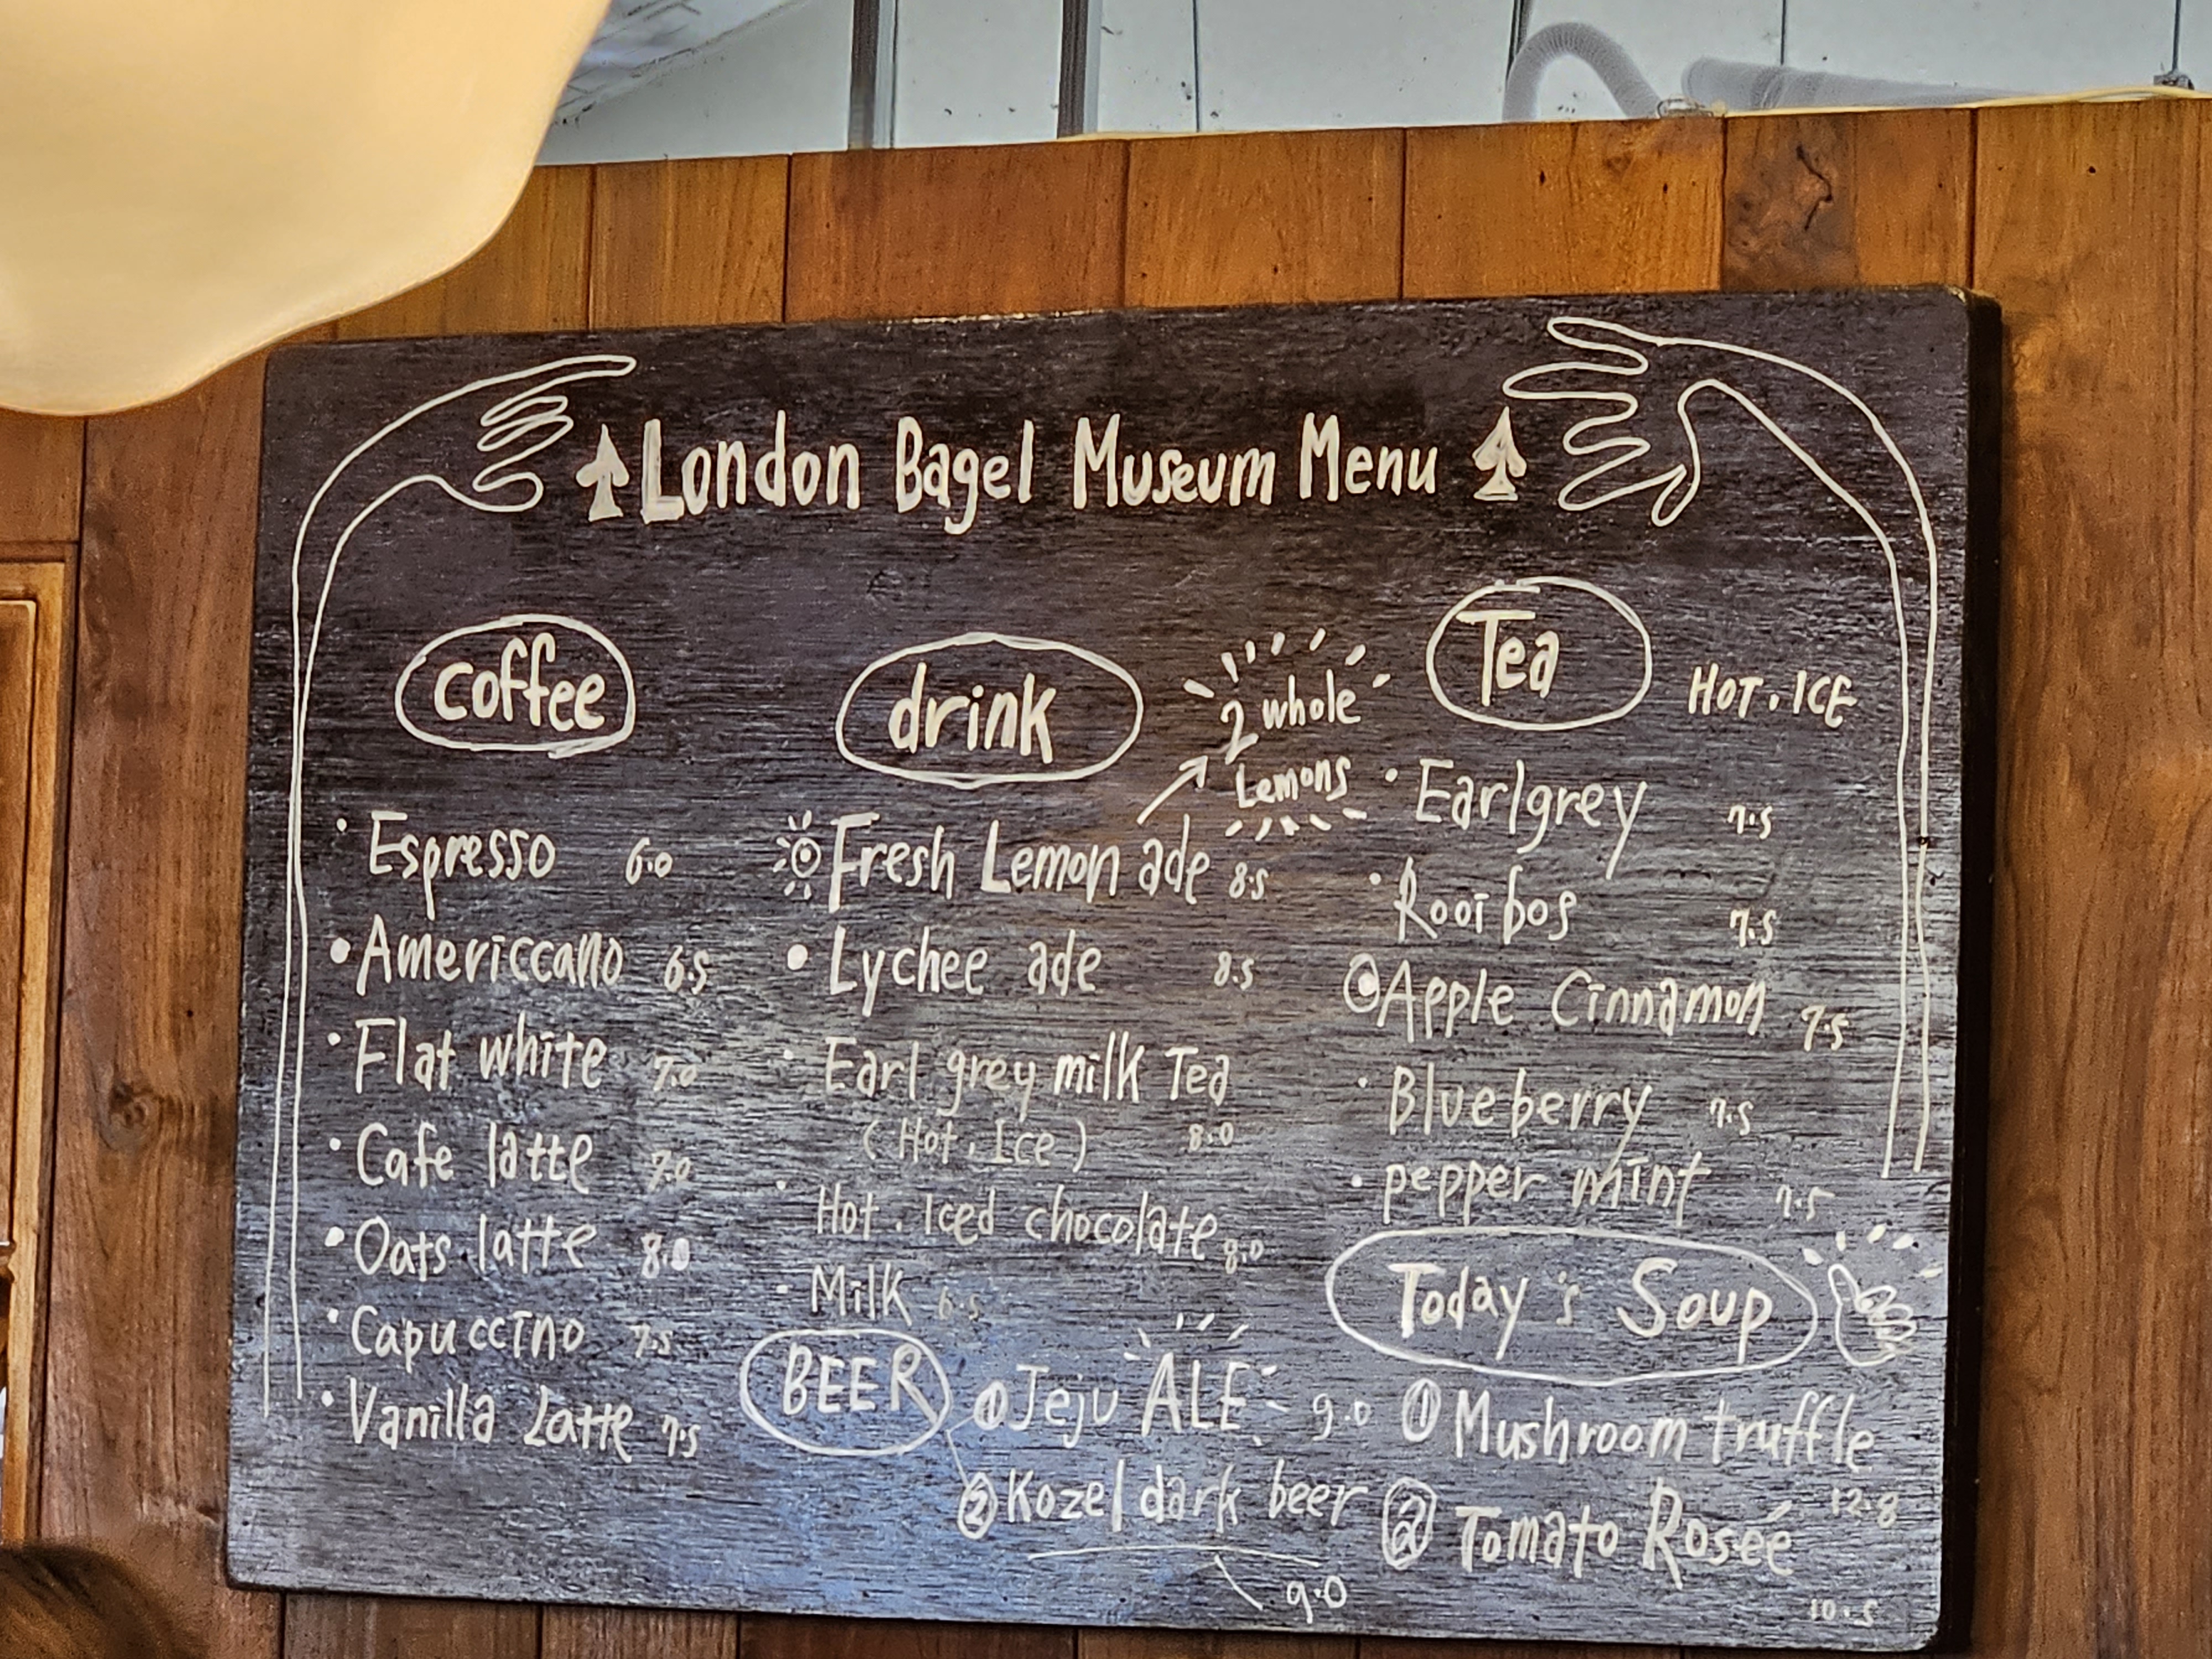 London Bagel Museum Menu
coffee
Espresso 6.0
Americcano 6.5
Flat white 7.0
Cafe latte 7.0
Oats latte 8.0
Capuccino 7.5
Vanilla Latte 7.5
drink
2 whole
Lemons
Fresh Lemon ade 8.5
Lychee ade 8.5
Earl grey milk Tea
(Hot, Ice) 8.0
Hot. Iced chocolate 8.0
Milk 6.5
BEER
① Jeju ALE 9.0
② Kozel dark beer
9.0
Tea
HOT. ICE
Earlgrey 7.5
Rooibos 7.5
Apple Cinnamon 7.5
Blueberry 7.5
pepper mint 7.5
Today's Soup
① Mushroom truffle
12.8
② Tomato Roseé
10.5